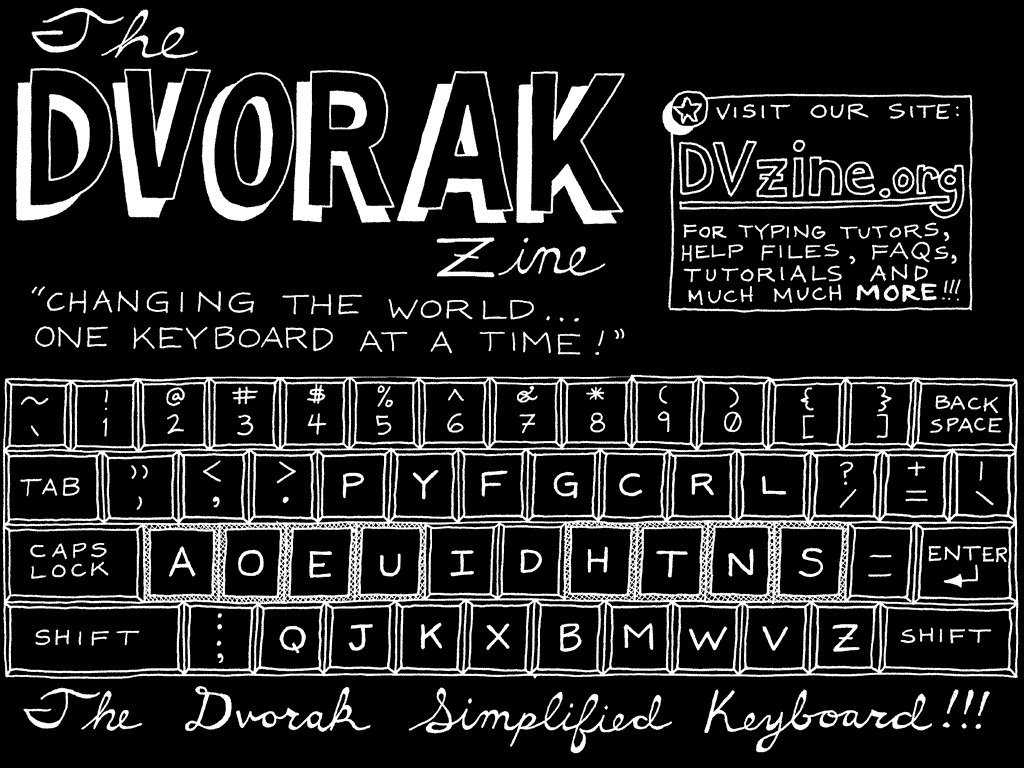 The
DVORAK
Zine
"CHANGING THE WORLD...
ONE KEYBOARD AT A TIME!"
VISIT OUR SITE:
DVzine.org
FOR TYPING TUTORS,
HELP FILES, FAQs,
TUTORIALS AND
MUCH MUCH MORE!!!
~ ! @ # $ % ^ & * ( ) { } BACK
` 1 2 3 4 5 6 7 8 9 0 [ ] SPACE
TAB " < > P Y F G C R L ? + |
' , . / = \
CAPS LOCK A O E U I D H T N S _ - ENTER
SHIFT : ; Q J K X B M W V Z SHIFT
The Dvorak Simplified Keyboard!!!